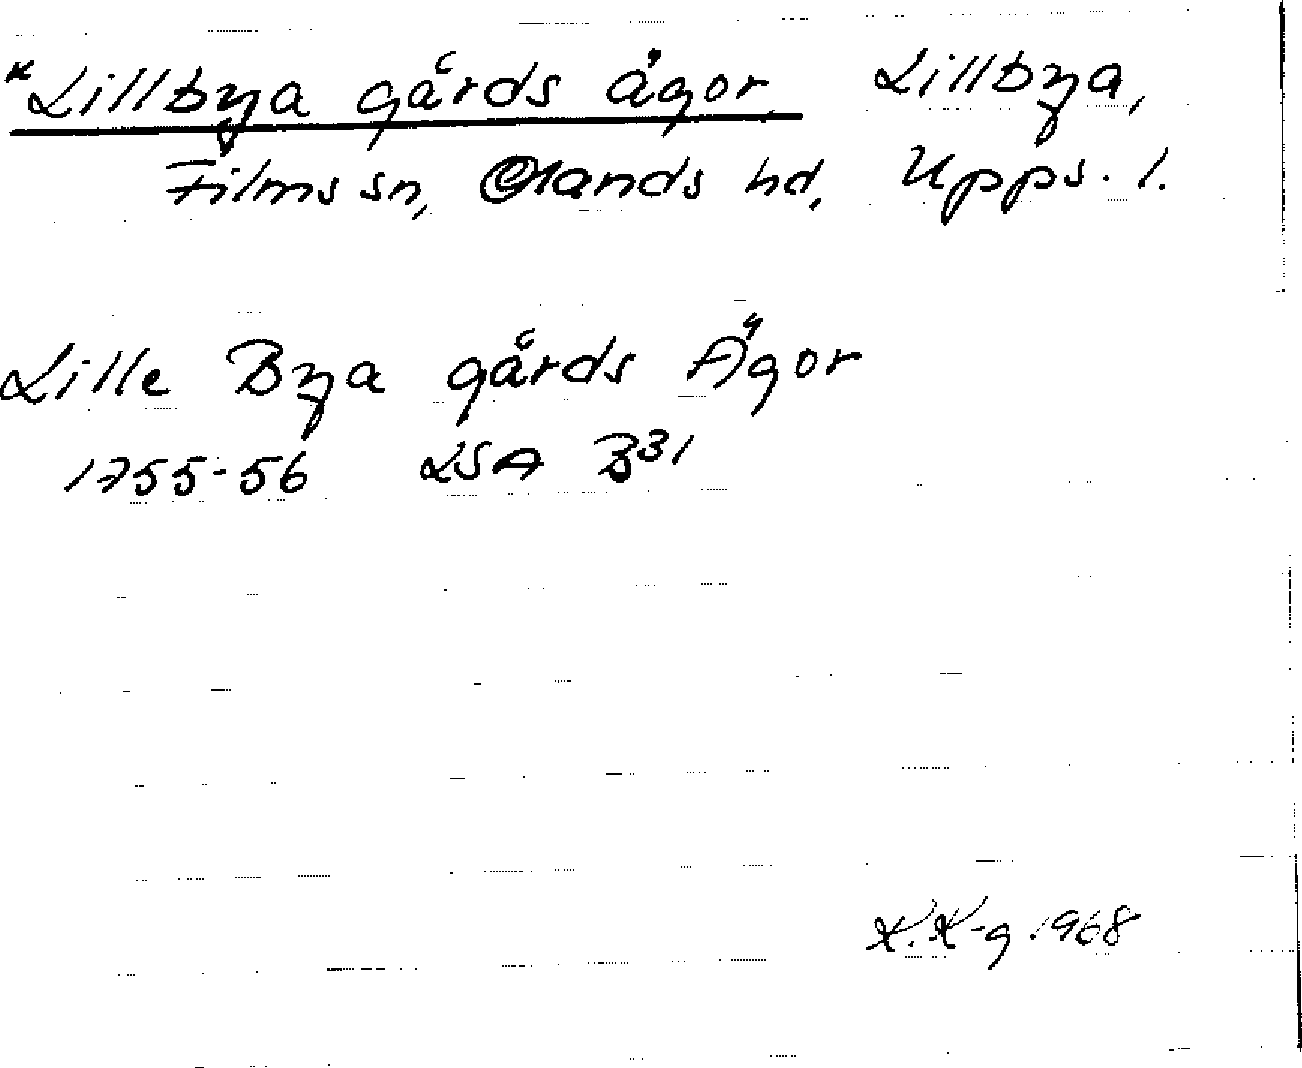 *Lillbya gårds ägor Lillbya,
Films sn, Olands hd, Upps. l.
Lille Bya gårds Ägor
1755-56 LSA B31
K. K-g 1968